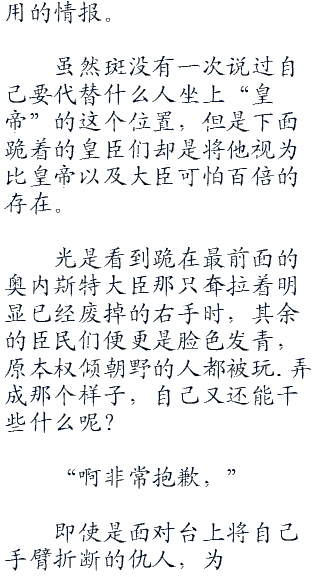 用的情报。
虽然斑没有一次说过自
己要代替什么人坐上“皇
帝”的这个位置，但是下面
跪着的皇臣们却是将他视为
比皇帝以及大臣可怕百倍的
存在。
光是看到跪在最前面的
奥内斯特大臣那只耷拉着明
显已经废掉的右手时，其余
的臣民们便更是脸色发青，
原本权倾朝野的人都被玩.弄
成那个样子，自己又还能干
些什么呢？
“啊非常抱歉，”
即使是面对台上将自己
手臂折断的仇人，为